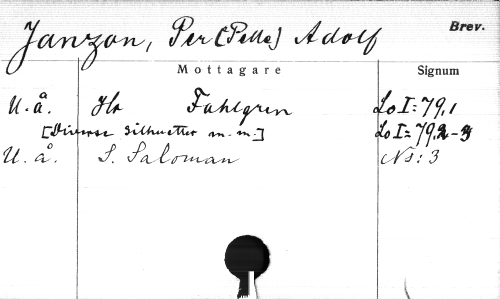 Janzon, Per (Pelle) Adolf Brev.
Mottagare Signum
U.å. Hr Fahlgren Lo I:79,1
[Diverse silhuetter m.m.] Lo I:79,2-3
U.å. S. Saloman Ns: 3